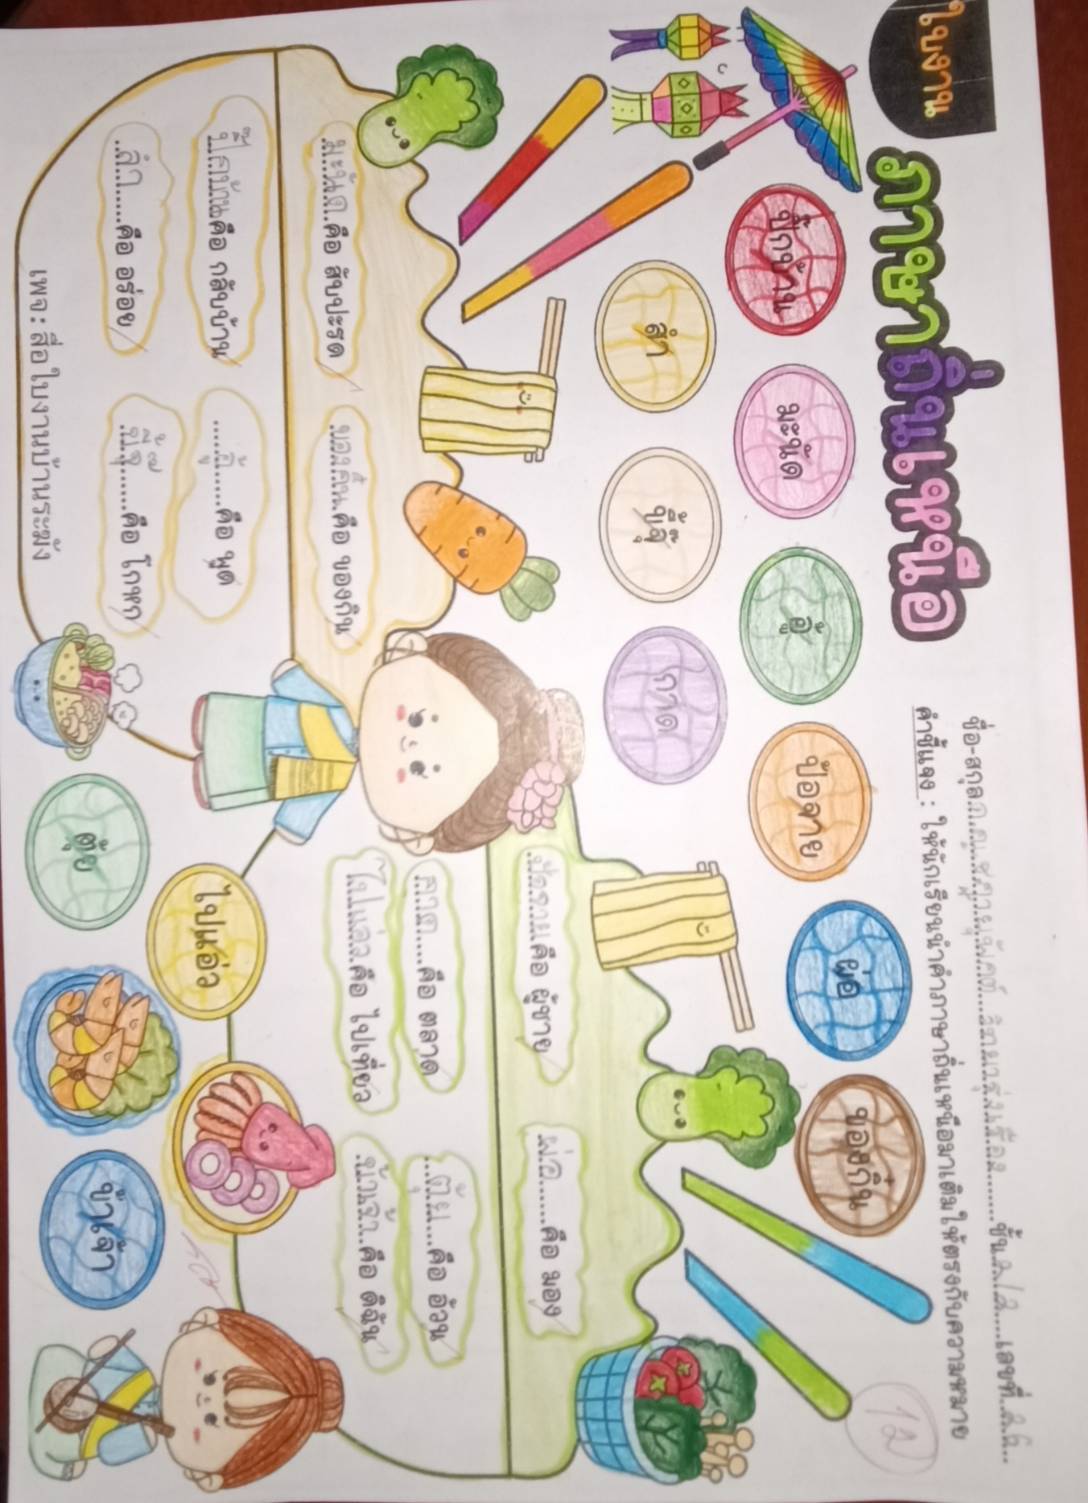 ใบงาน
ภาษาถิ่นเหนือ
ชื่อ-สกุล
ชั้น
เลขที่
คำชี้แจง : ให้นักเรียนนำคำภาษาถิ่นเหนือมาเติมให้ตรงกับความหมาย
ปิ๊กบ้าน
มะขะนัด
อู้
ป้อจาย
ผ่อ
ของกิ๋น
ลำ
ขี้จุ๊
กาด
คือ สับปะรด
ของกิ๋น คือ ของกิน
ปิ๊กบ้าน คือ กลับบ้าน
อู้ คือ พูด
ลำ คือ อร่อย
ขี้จุ๊ คือ โกหก
ป้อจาย คือ ผู้ชาย
ผ่อ คือ มอง
กาด คือ ตลาด
ตุ้ย คือ อ้วน
ไปแอ่ว คือ ไปเที่ยว
ข้าเจ้า คือ ดิฉัน
ตุ้ย
ไปแอ่ว
ข้าเจ้า
เพจ : สื่อใบงานบ้านระฆัง